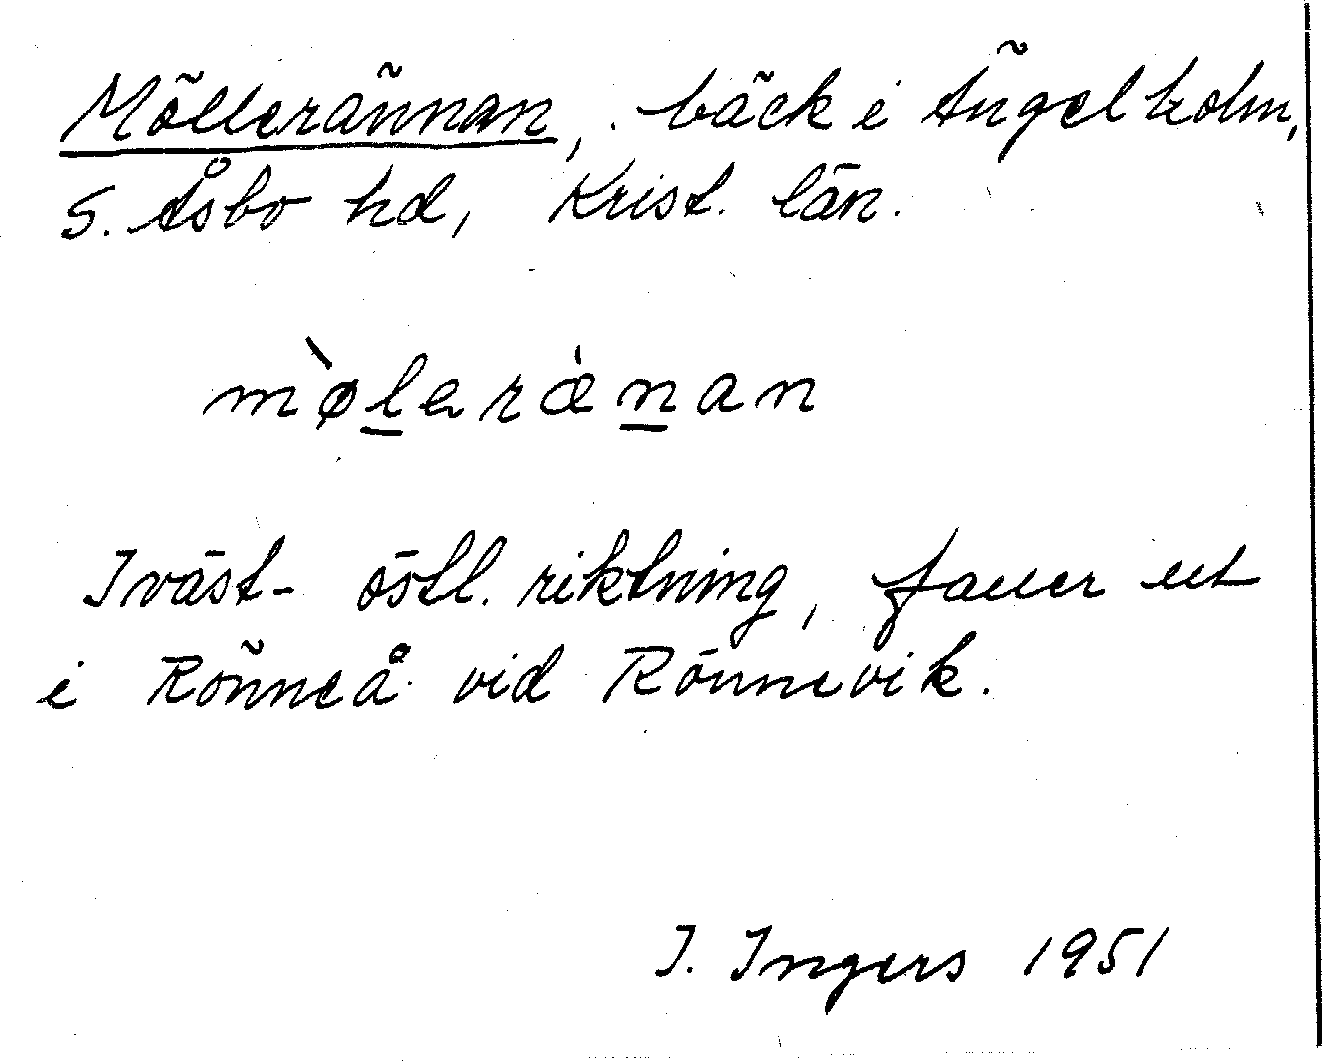 Möllerännan, bäck i Ängelholm,
S. Åsbo hd, Krist. län.
mø̀l̲eræ̀n̲an
I väst-östl. riktning, faller ut
i Rönneå vid Rönnevik.
I. Ingers 1951